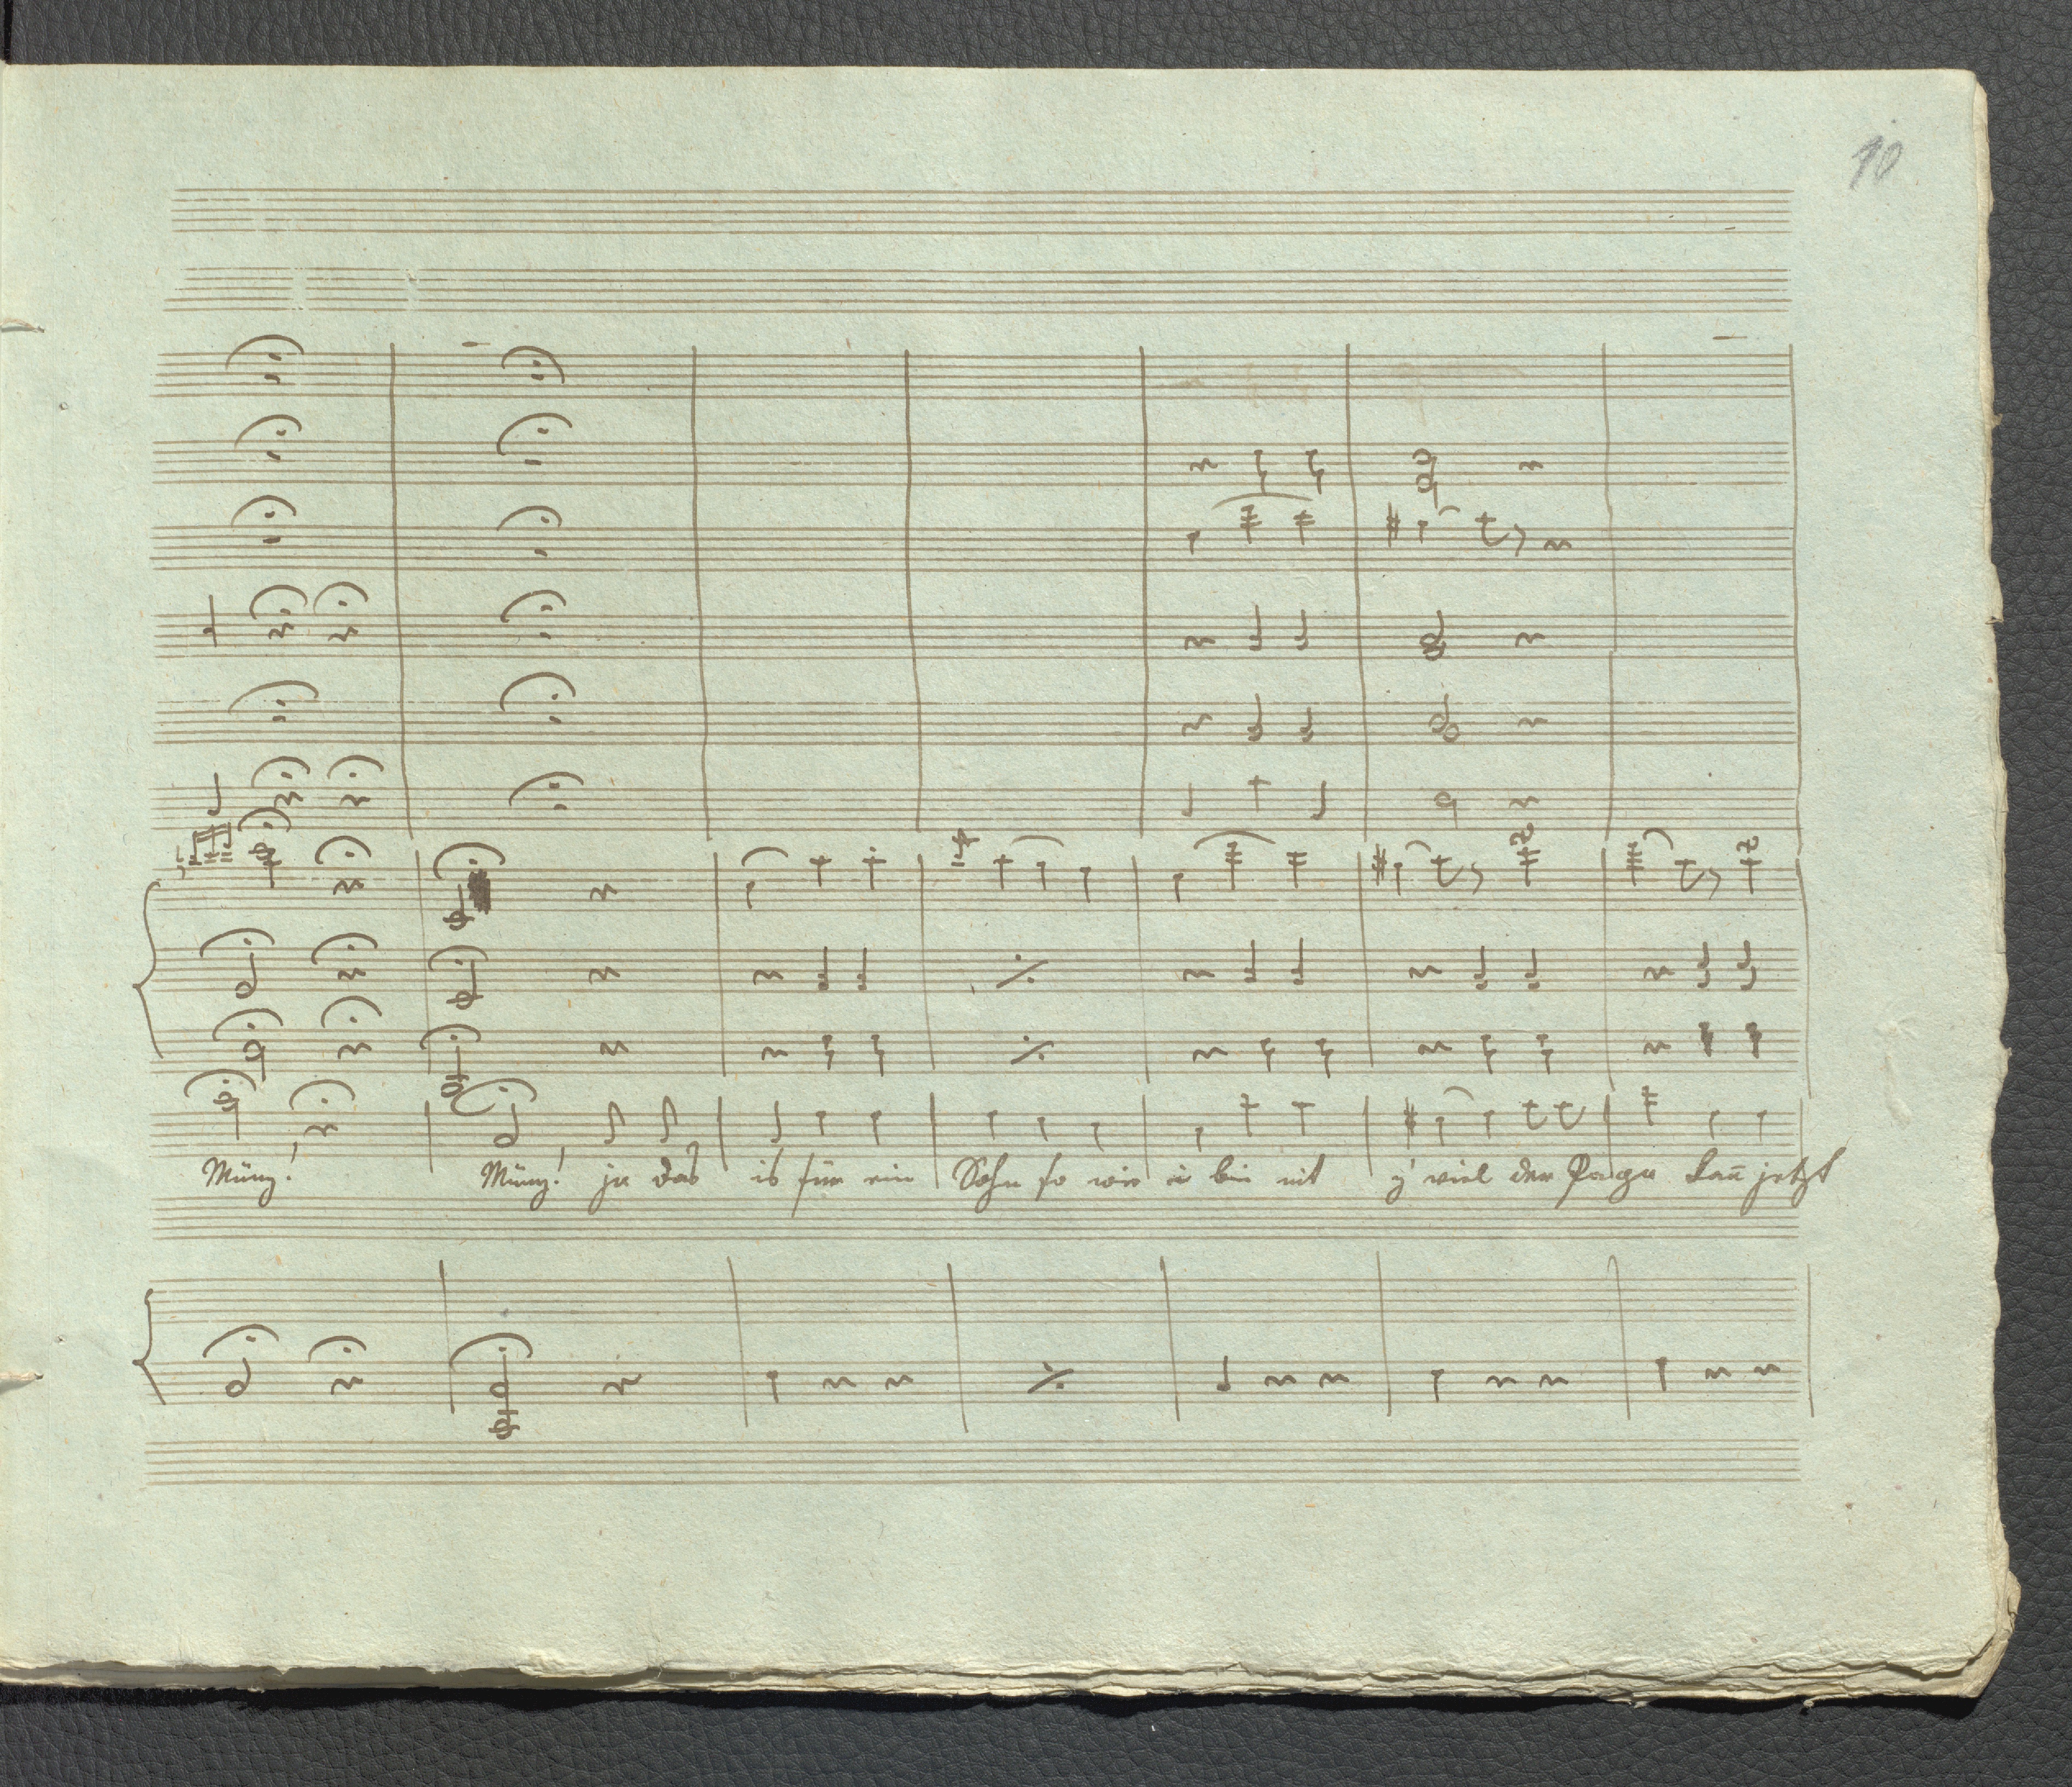 10
Münz! Münz! ja das is für ein Sohn so wie i bin nit z' viel der Page kan̄ jetzt